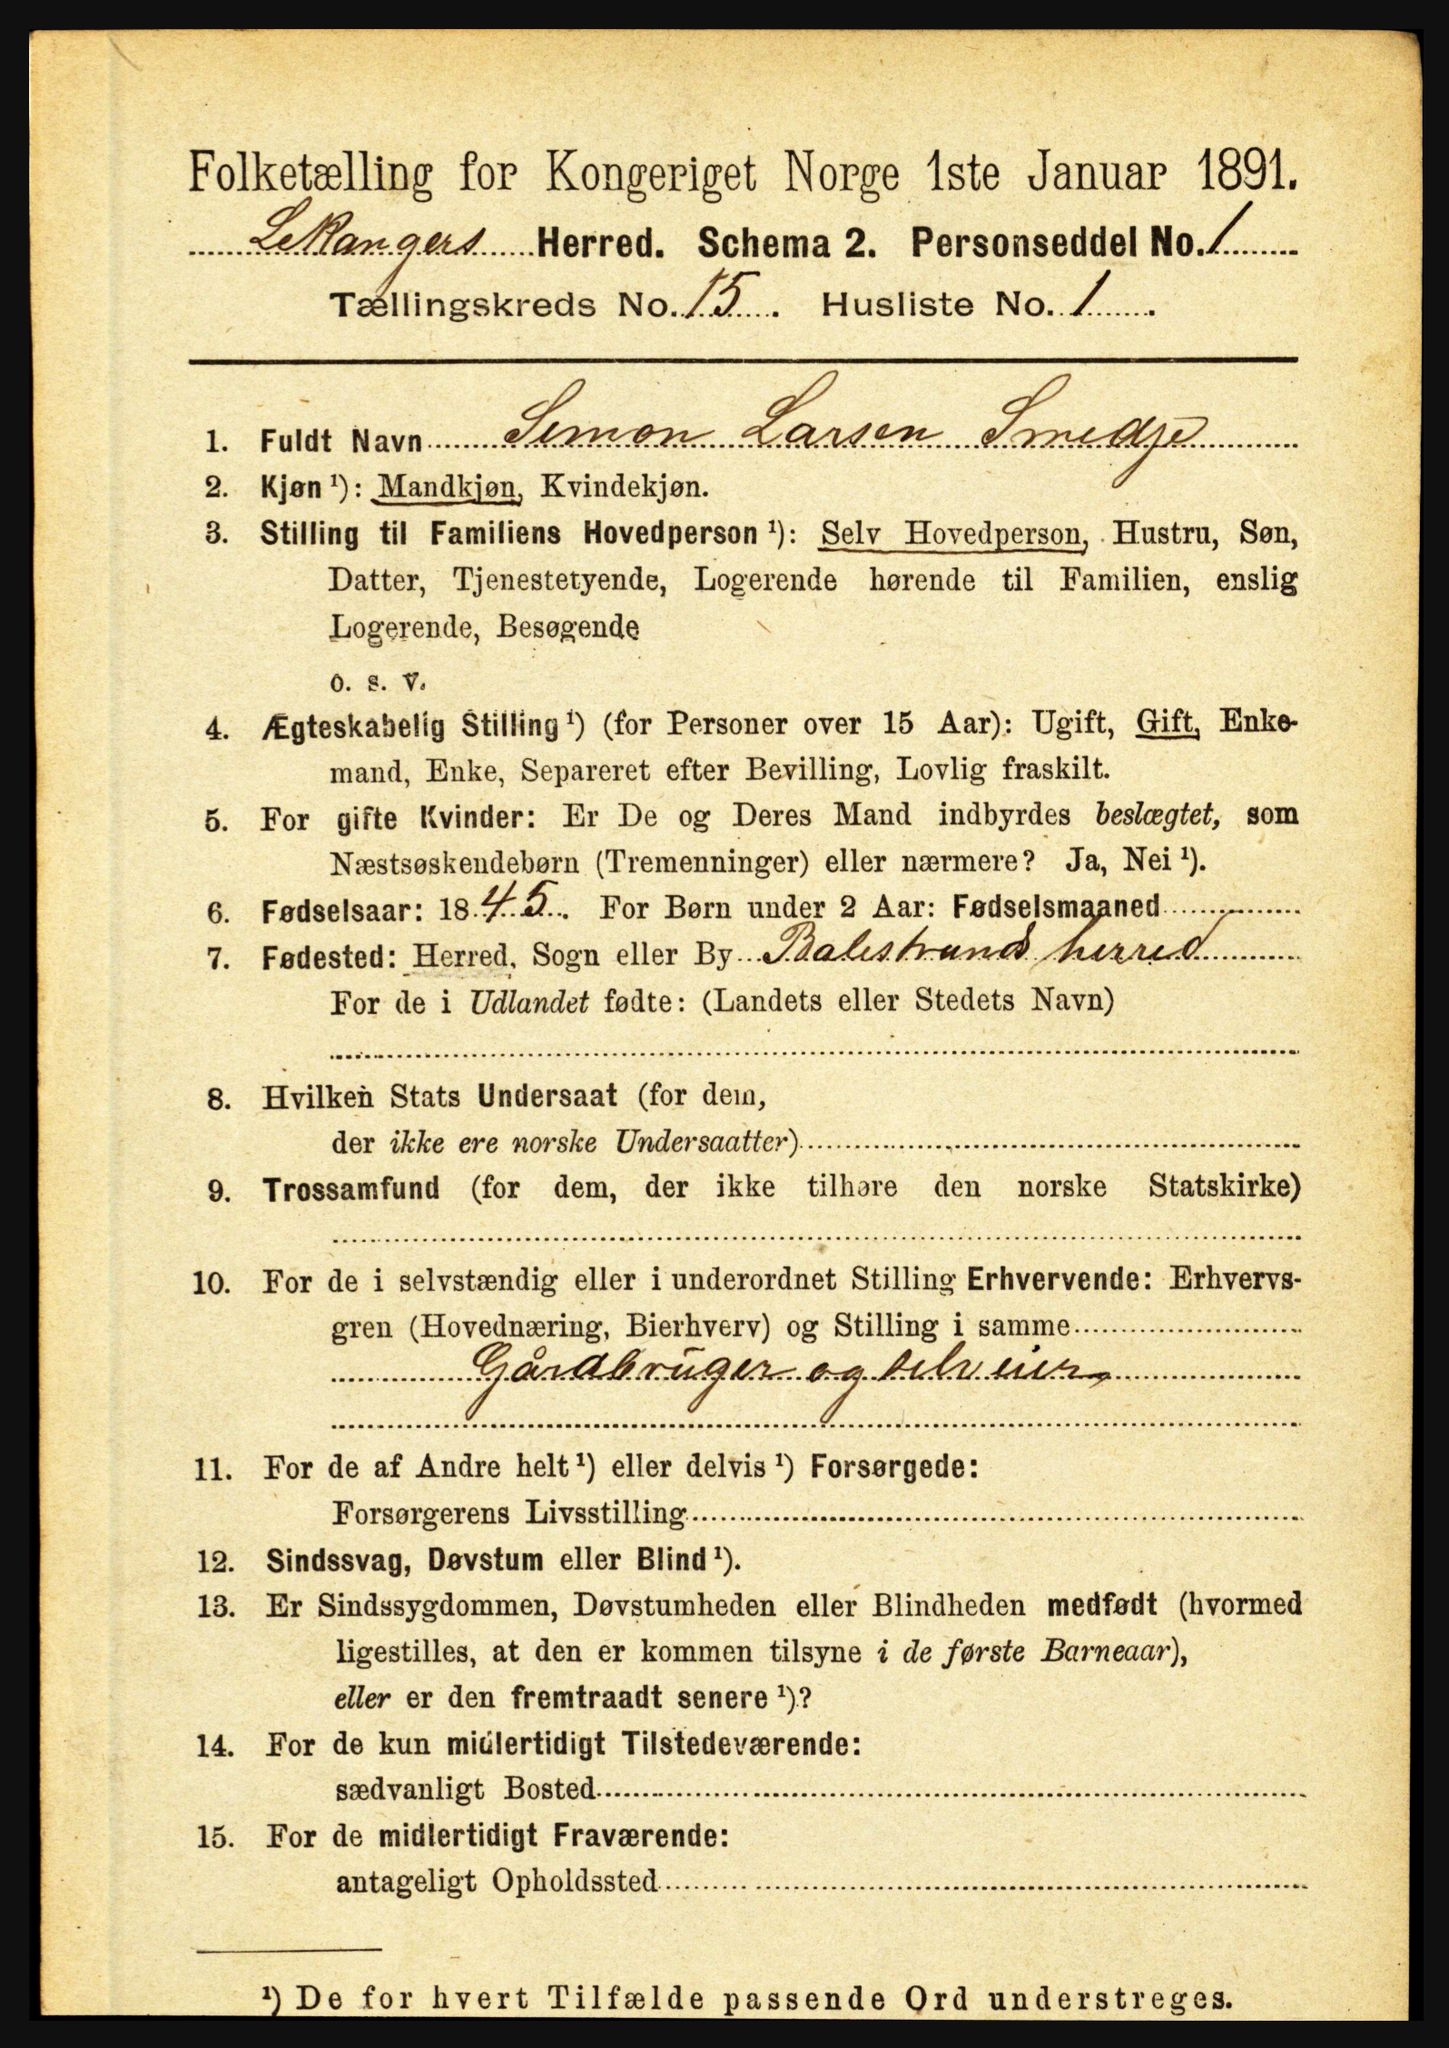 Folketælling for Kongeriget Norge 1ste Januar 1891.
Lekangers Herred. Schema 2. Personseddel No. 1
Tællingskreds No. 15. Husliste No. 1.
1. Fuldt Navn Simon Larsen Smedje
2. Kjøn ¹): Mandkjøn, Kvindekjøn.
3. Stilling til Familiens Hovedperson ¹): Selv Hovedperson, Hustru, Søn,
Datter, Tjenestetyende, Logerende hørende til Familien, enslig
Logerende, Besøgende
o. s. v.
4. Ægteskabelig Stilling ¹) (for Personer over 15 Aar): Ugift, Gift, Enke-
mand, Enke, Separeret efter Bevilling, Lovlig fraskilt.
5. For gifte Kvinder: Er De og Deres Mand indbyrdes beslægtet, som
Næstsøskendebørn (Tremenninger) eller nærmere? Ja, Nei ¹).
6. Fødselsaar: 1845. For Børn under 2 Aar: Fødselsmaaned
7. Fødested: Herred, Sogn eller By Balestrand herred
For de i Udlandet fødte: (Landets eller Stedets Navn)
8. Hvilken Stats Undersaat (for dem,
der ikke ere norske Undersaatter)
9. Trossamfund (for dem, der ikke tilhøre den norske Statskirke)
10. For de i selvstændig eller i underordnet Stilling Erhvervende: Erhvervs-
gren (Hovednæring, Bierhverv) og Stilling i samme
Gårdbruger og selveier
11. For de af Andre helt ¹) eller delvis ¹) Forsørgede:
Forsørgerens Livsstilling
12. Sindssvag, Døvstum eller Blind ¹).
13. Er Sindssygdommen, Døvstumheden eller Blindheden medfødt (hvormed
ligestilles, at den er kommen tilsyne i de første Barneaar),
eller er den fremtraadt senere ¹)?
14. For de kun midlertidigt Tilstedeværende:
sædvanligt Bosted
15. For de midlertidigt Fraværende:
antageligt Opholdssted
¹) De for hvert Tilfælde passende Ord understreges.